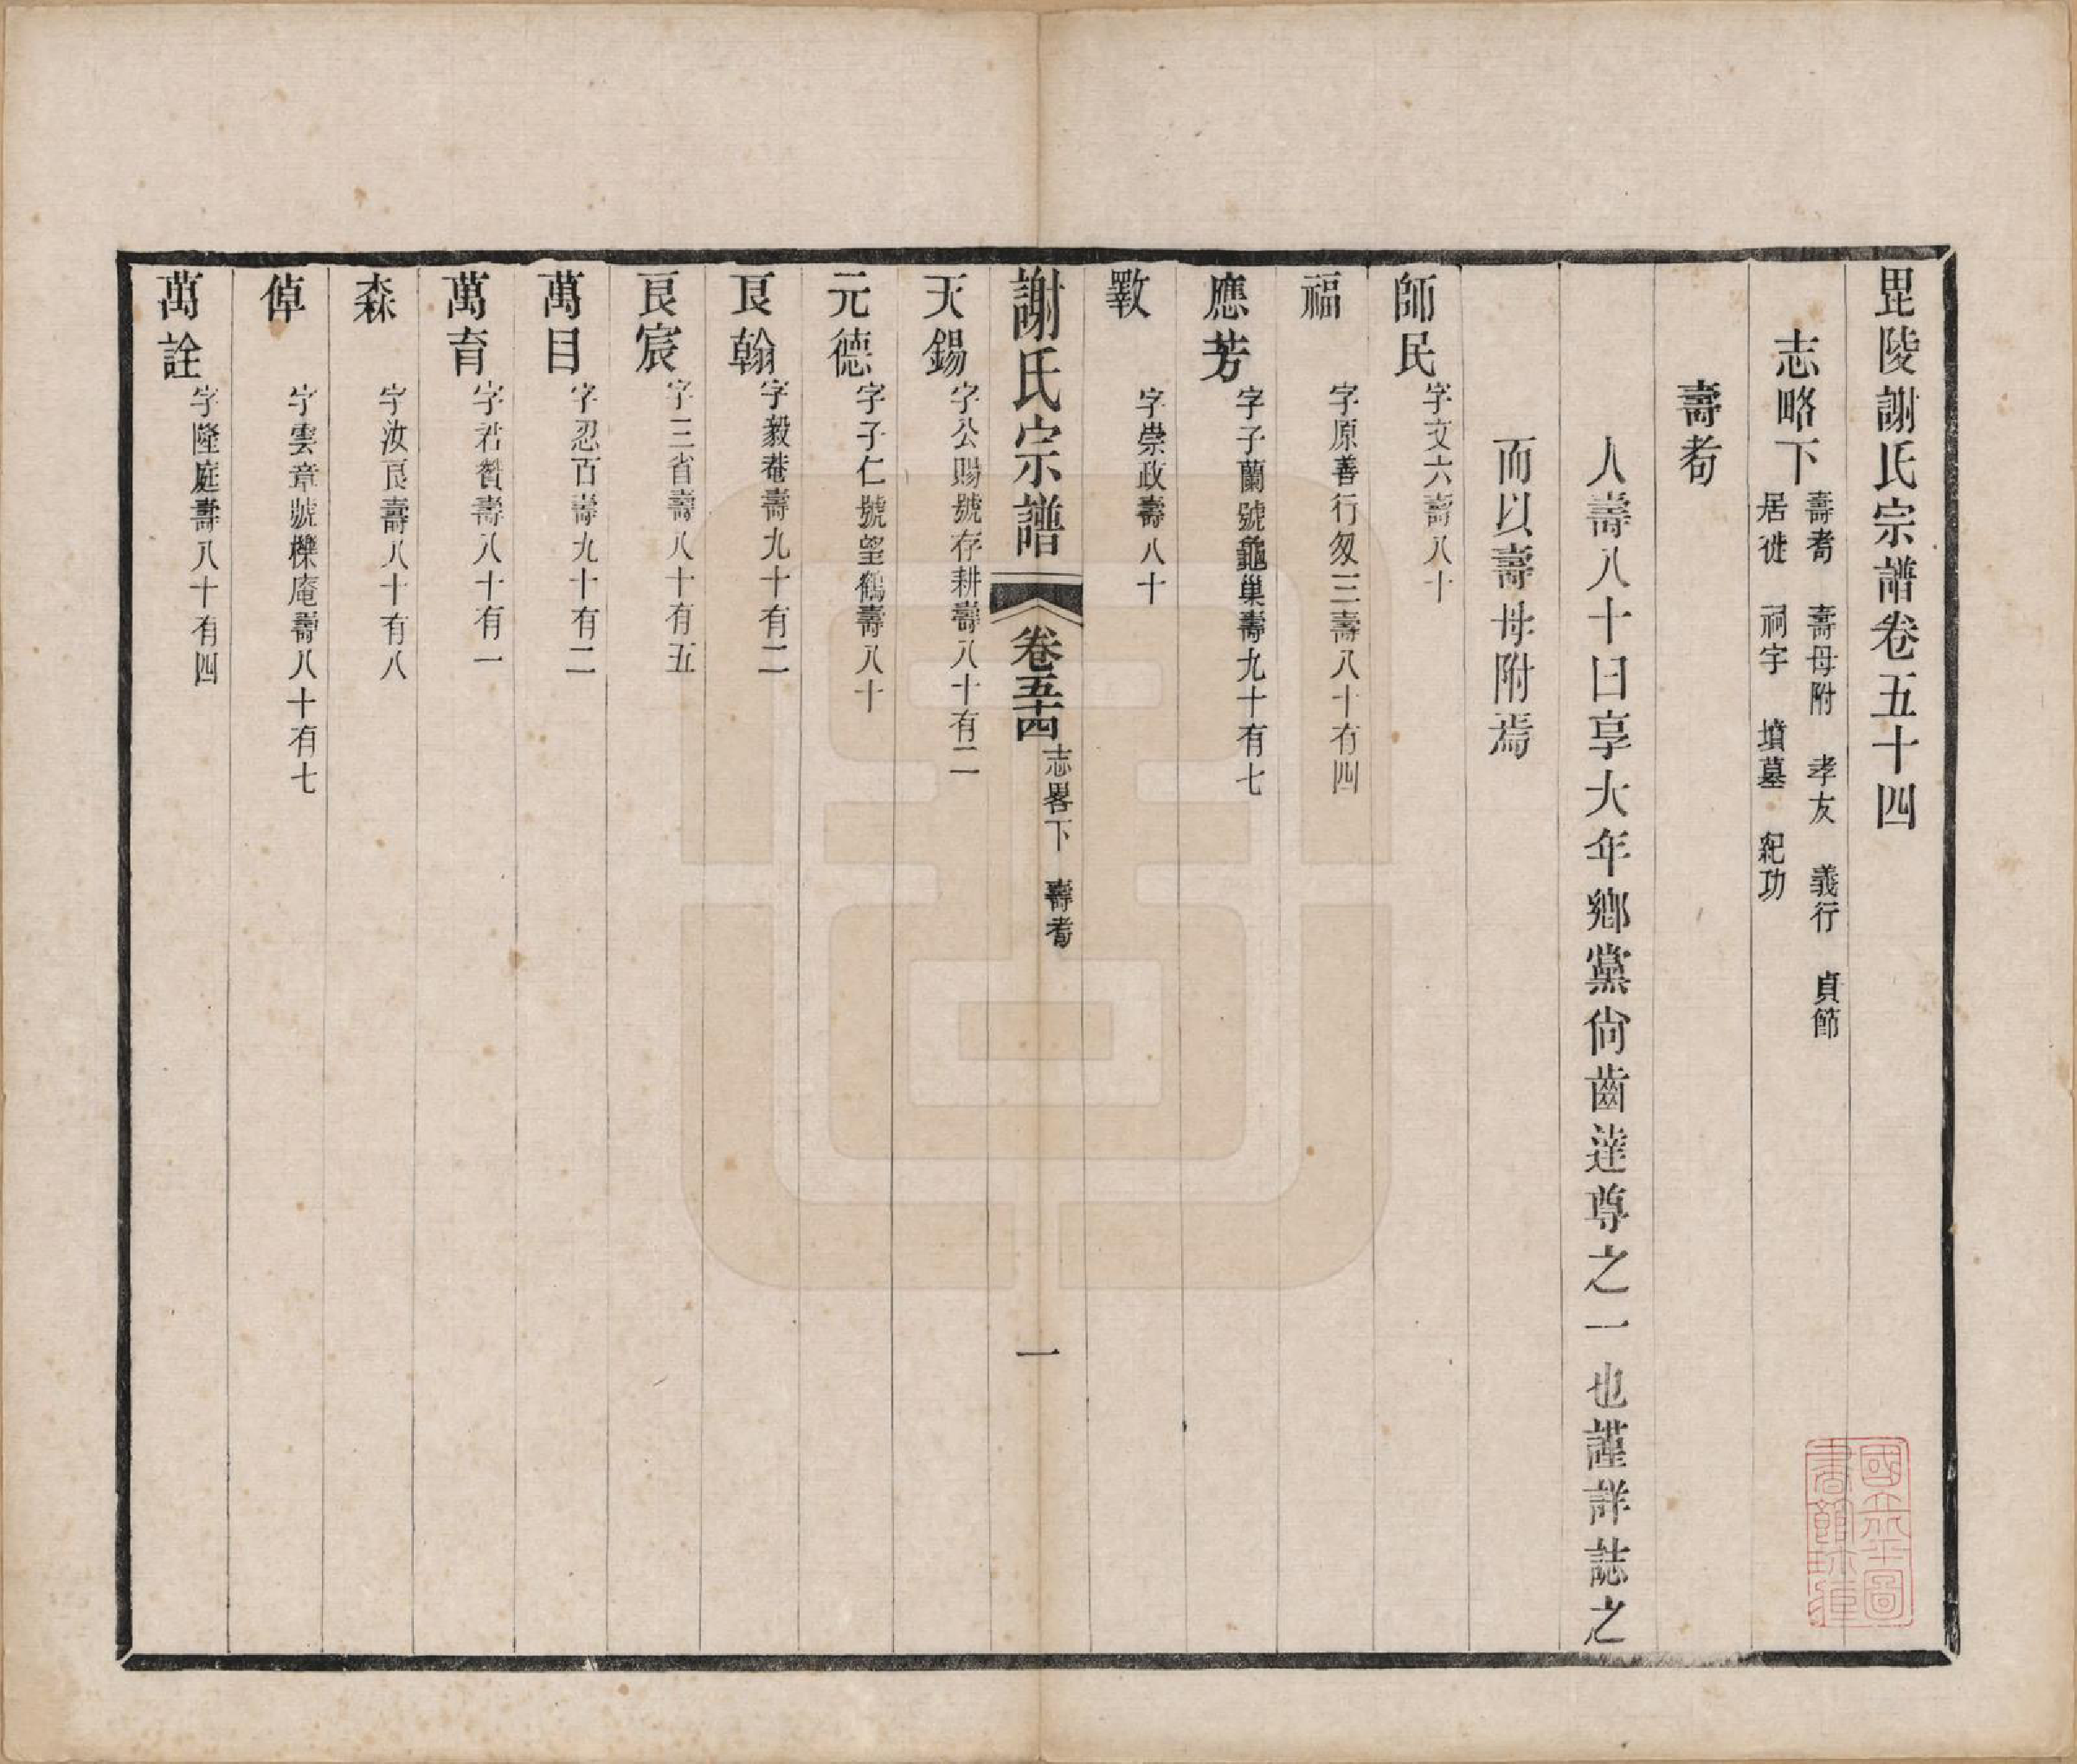 毘陵謝氏宗譜卷五十四
志略下
壽耈 壽母附 孝友 義行 貞節
居徙 祠宇 墳墓 紀功
壽耈
人壽八十曰享大年鄉黨尙齒達尊之一也謹詳誌之
而以壽母附焉
師民 字文六壽八十
福 字原善行叙三壽八十有四
應芳 字子蘭號龜巢壽九十有七
斁 字崇政壽八十
謝氏宗譜 卷五十四 志畧下 壽耈 一
天錫 字公賜號存耕壽八十有二
元德 字子仁號望鶴壽八十
良翰 字毅菴壽九十有二
良宸 字三省壽八十有五
萬目 字忍百壽九十有二
萬育 字君贊壽八十有一
森 字汝良壽八十有八
倬 字雲章號櫟庵壽八十有七
萬詮 字隆庭壽八十有四
國立北平圖書館珍藏